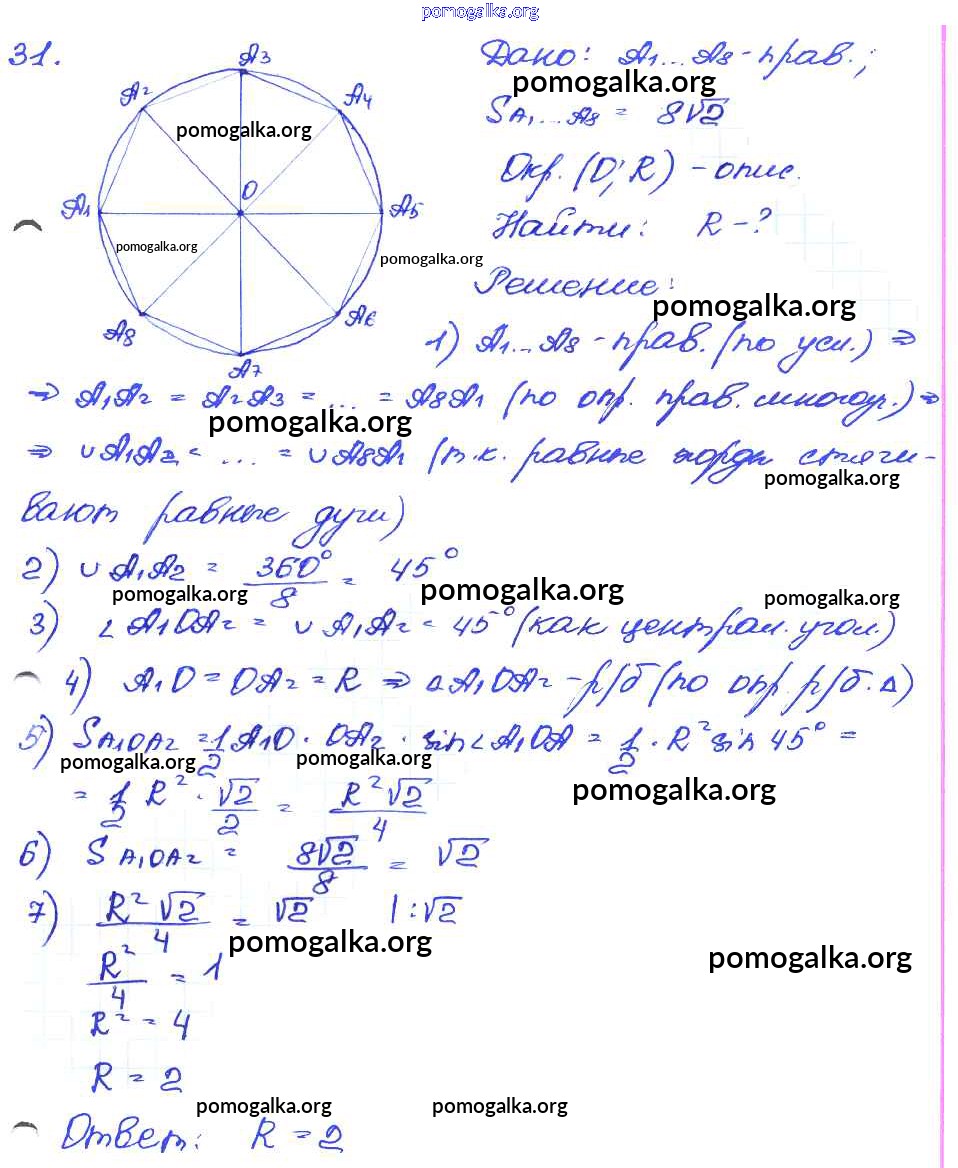 pomogalka.org
31.
A3
A2
A4
pomogalka.org
O
A1
A5
pomogalka.org
pomogalka.org
A8
A6
A7
Дано: A1...A8 - прав.;
pomogalka.org
SA1...A8 = 8√2
Окр. (O; R) - опис.
Найти: R - ?
Решение:
pomogalka.org
1) A1...A8 - прав. (по усл.) ⇒
⇒ A1A2 = A2A3 = ... = A8A1 (по опр. прав. многоуг.) ⇒
pomogalka.org
⇒ ∪A1A2 = ... = ∪A8A1 (т.к. равные хорды стяги-
pomogalka.org
вают равные дуги)
2) ∪A1A2 = 360°/8 = 45°
pomogalka.org pomogalka.org pomogalka.org
3) ∠A1OA2 = ∪A1A2 = 45° (как централ. угол.)
4) A1O = OA2 = R ⇒ △A1OA2 - р/б (по опр. р/б. △)
5) SA1OA2 = 1/2 A1O · OA2 · sin∠A1OA = 1/2 · R² sin 45° =
pomogalka.org pomogalka.org
= 1/2 R² · √2/2 = R²√2/4
pomogalka.org
6) SA1OA2 = 8√2/8 = √2
7) R²√2/4 = √2 |:√2
pomogalka.org
pomogalka.org
R²/4 = 1
R² = 4
R = 2
pomogalka.org pomogalka.org
Ответ: R = 2